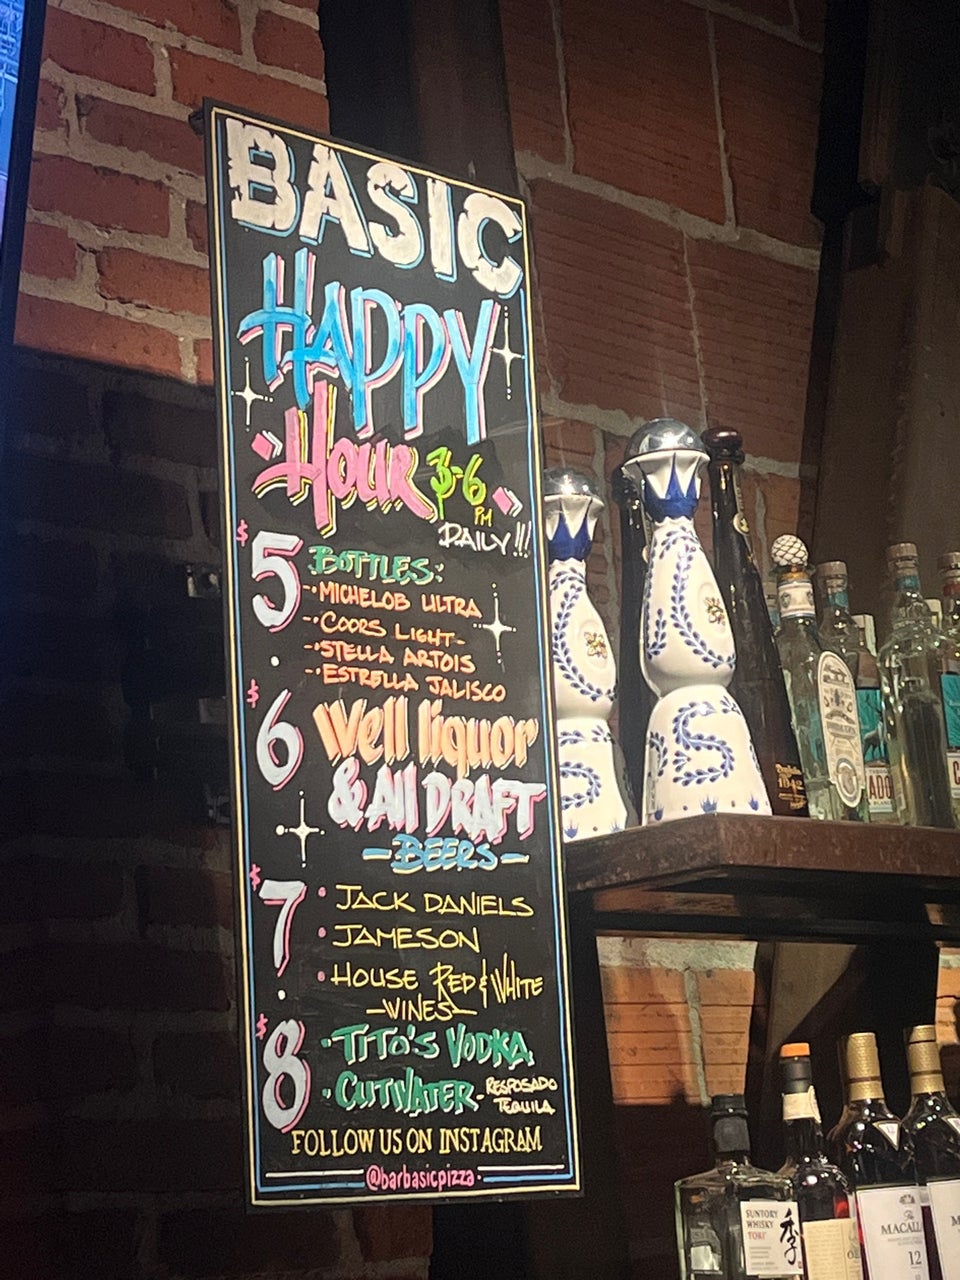 BASIC
HAPPY
HOUR 3-6
PM
DAILY!!!
$5
BOTTLES:
-·MICHELOB ULTRA
-·COORS LIGHT-
-·STELLA ARTOIS
-·ESTRELLA JALISCO
$6
Well liquor
& All DRAFT
-BEERS-
$7
·JACK DANIELS
·JAMESON
·HOUSE RED & WHITE
-WINES-
$8
·TITO'S VODKA
·CUTWATER-RESPOSADO
TEQUILA
FOLLOW US ON INSTAGRAM
@barbasicpizza
1942
ADO
BLANCO
SUNTORY
WHISKY
TOKI
季
The
MACALL
12